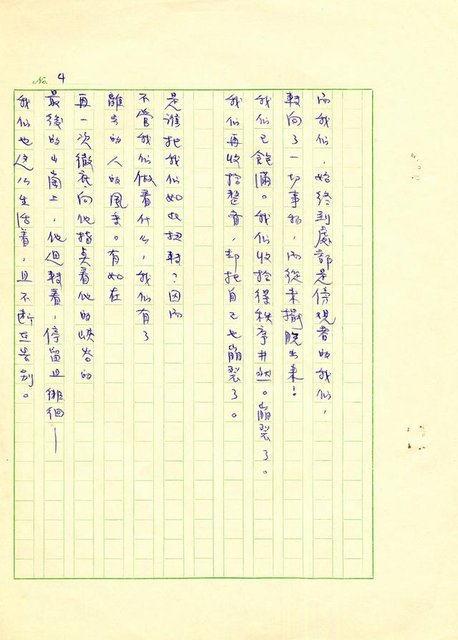 No. 4
而我們,始終到處都是傍視者的我們,
轉向了一切事物,而從未擺脫出來!
我們已飽滿。我們收拾得秩序井然。崩裂了。
我們再收拾整齊,却把自己也崩裂了。
是誰把我們如此扭轉?因而
不管我們做着什么,我們有了
離去的人的風采。有如在
再一次徹底向他指點着他的峽谷的
最後的山崗上,他但轉着,停留且徘徊—
我們也這么生活着,且不斷在告别。